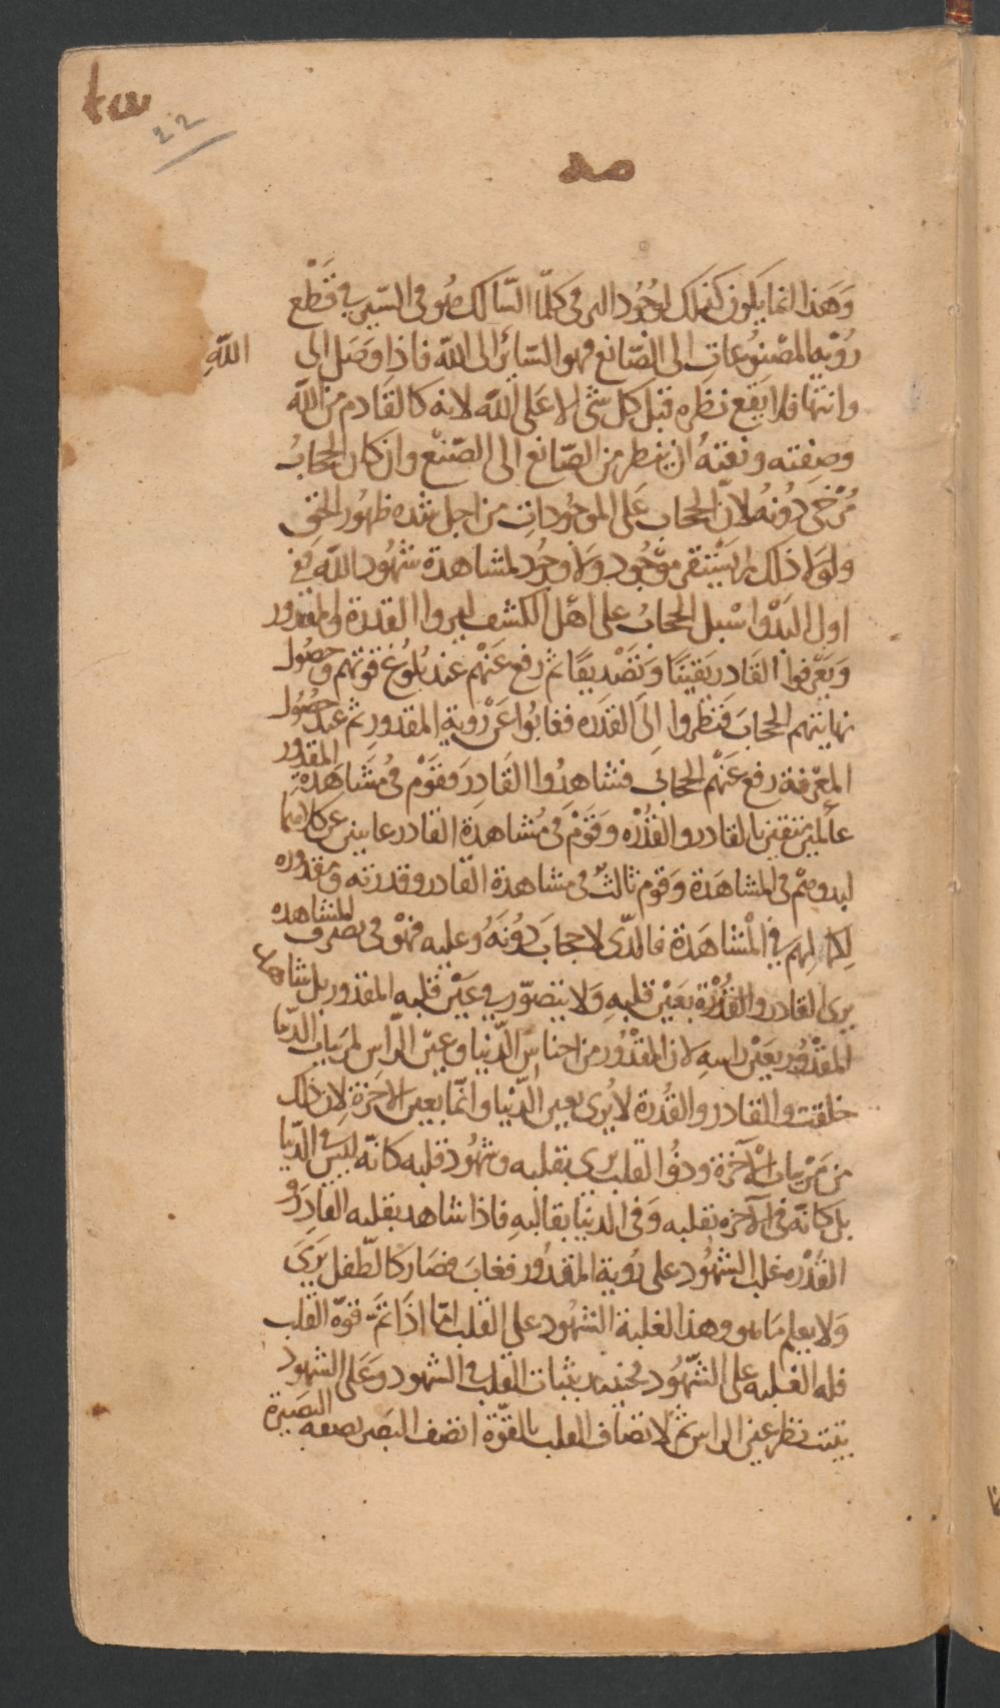 22
وَهَذا انما يكون كذلك لوجُود السر في كلمّا السّالك هو في السّير في قَطْع
رُؤية المصْنوُعاتِ الى الصّانع فهو السّائر الى اللّه فاذا وصَل الى اللّهِ
وانتها فلا يَقع نظره قبل كل شى الا عَلى اللّه لانه كالقادم من اللّه
وصِفته ونعته ان ينظر من الصّانع الى الصّنْع وان كان الحجابُ
مُرْخى دُونهُ لانّ الحجاب عَلى الموجُوداتِ من اجل شده ظهُور الحق
ولولا ذلك لم يَبْتقى موجُود ولا وجُود لمشاهدة شهُود اللّه في
اول البَدْو اسْبل الحجابُ على اهْل الكشف ليروا القدرة والمقدور
وَيَعْرفوا القَادر يَقينًا وَتَصْديقًا ثم رفع عَنْهم عند بُلوغ قوتهم وحصُول
نهايتهم الحجابَ فَنَظروا الى القدَره فغابُوا عَنْ رُوية المقدورِ ثم عند حصُول
المعْرفة رفع عَنْهم الحجابَ فشاهدُوا القَادِرَ فقَوْم في مُشَاهَدةِ المقدور
عالمين متقنين بالقادر والقُدْره وقَوْم في مُشاهدة القادر غايبين عن كلاهما
لبدوهم في المشاهَدة وَقوم ثالثٌ في مشاهدة القادر وقدرته ومقدُوره
لِكمالهم في المْشَاهَدة فالذّى لا حجابَ دُونَهُ وعليه فهْو في تصَرف المشاهده
يرى القادر والقُدْرة بعَيْن قلبهِ وَلا يتصوّر في عَيْن قلبه المقدور بل شاهد
المقْدُور بعَيْن راسهِ لان المقْدُور من اجناسِ الدّنيا وعين الرّاس لمرَيات الدّنيا
خلقت والقادر والقُدرة لا يُرى بعين الدّنيا وانّما بعين الاخرة لان ذلك
من مَرْيات الآخرة وذوُ القلب يرى بقلبه وشهُود قلبه كانّه ليس في الدّنيا
بل كانّه في الآخره بقلبه وَفى الدنيا بقالبهِ فاذا شاهد بقلبه القادِرَ و
القُدْره غلب الشهُود على رُوية المقدُور فغابَ فصَار كالطّفل يَرَى
وَلا يعلم مَا هو وهذا لغلبة الشهُود على القلب امّا اذا تمّ قوّة القلب
فله الغلبه على الشّهُود فحينئذ يثبات القلب في الشهود وعَلى الشهود
يثبت نظر عين الراس ثم لاتصاف القلب بالقوّة اتصف البصَر بصفه البَصيرة